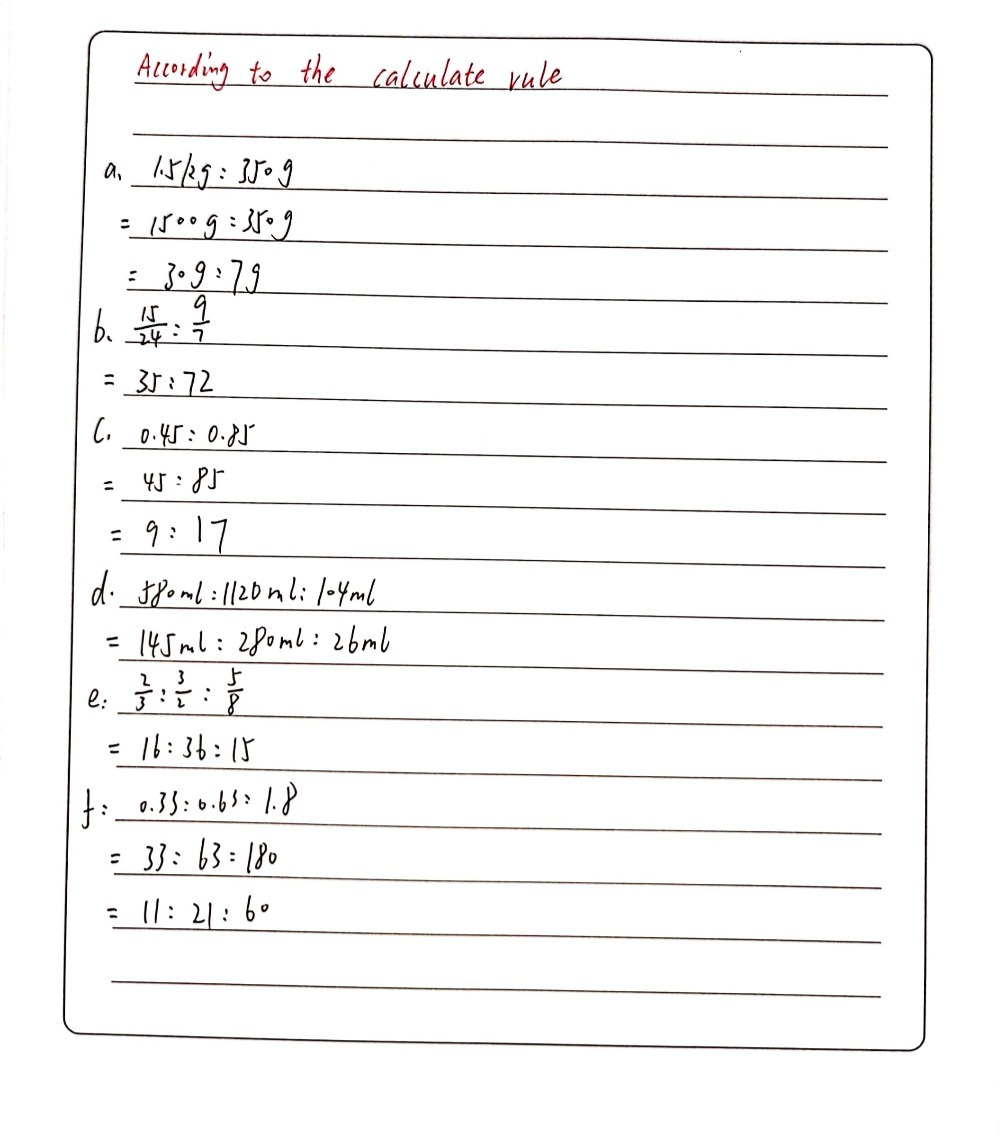 According to the calculate rule
a. 1.5kg : 350g
= 1500g : 350g
= 30g : 7g
b. 15/24 : 9/7
= 35 : 72
C. 0.45 : 0.85
= 45 : 85
= 9 : 17
d. 580ml : 1120ml : 104ml
= 145ml : 280ml : 26ml
e: 2/3 : 3/2 : 5/8
= 16 : 36 : 15
f: 0.33 : 0.63 : 1.8
= 33 : 63 : 180
= 11 : 21 : 60